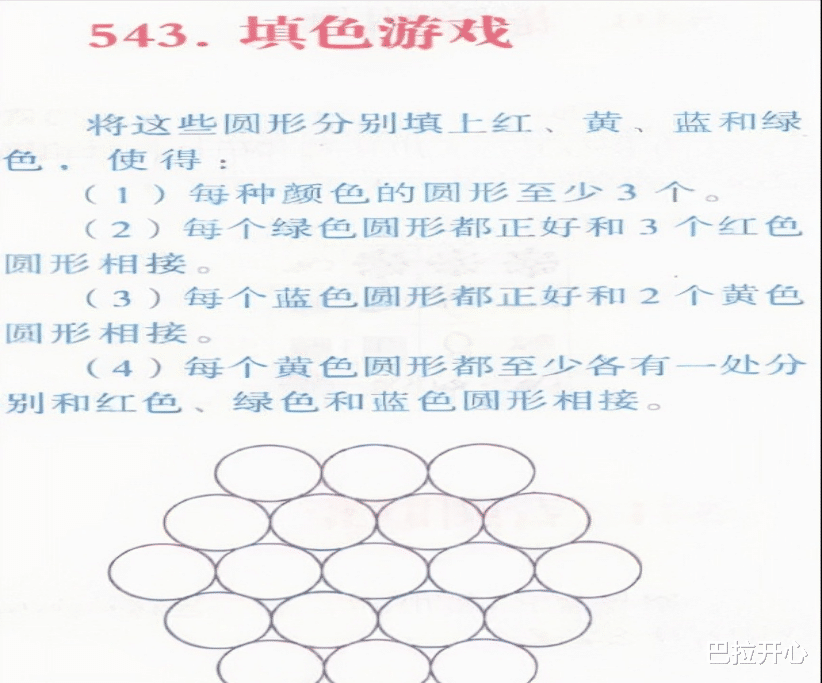 543. 填色游戏
将这些圆形分别填上红、黄、蓝和绿
色，使得：
（1）每种颜色的圆形至少3个。
（2）每个绿色圆形都正好和3个红色
圆形相接。
（3）每个蓝色圆形都正好和2个黄色
圆形相接。
（4）每个黄色圆形都至少各有一处分
别和红色、绿色和蓝色圆形相接。
巴拉开心